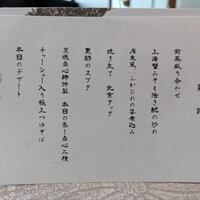 前菜盛り合わせ
上海蟹みそと活き鮑の炒め
広東風、ふかひれの姿煮込み
焼き立て 北京ダック
黒酢のスブタ
点心師特製 本日の蒸し点心二種
チャーシュー入り極上つゆそば
本日のデザート